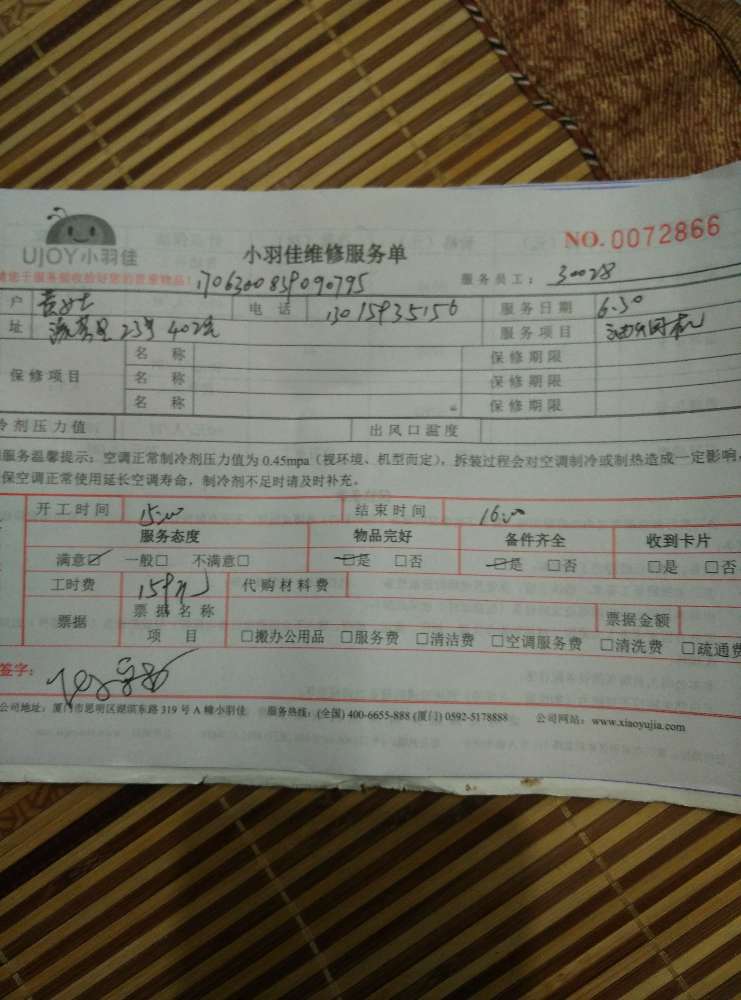 UJOY小羽佳 小羽佳维修服务单 NO. 0072866
1706300859090795 服务员工： 30028
户 女士 电 话 13015935156 服务日期 6.30
址 23号402 服务项目
保修项目 名 称 保修期限
名 称 保修期限
名 称 保修期限
冷剂压力值 出风口温度
服务温馨提示：空调正常制冷剂压力值为 0.45mpa（视环境、机型而定），拆装过程会对空调制冷或制热造成一定影响，
保空调正常使用延长空调寿命，制冷剂不足时请及时补充。
开工时间 15:00 结束时间 16:00
服务态度 物品完好 备件齐全 收到卡片
满意☑ 一般□ 不满意□ □是 □否 □是 □否 □是 □否
工时费 159元 代购材料费
票据 票据名称 票据金额
项 目 □搬办公用品 □服务费 □清洁费 □空调服务费 □清洗费 □疏通费
签字：
公司地址：厦门市思明区湖滨东路 319 号 A 幢小羽佳 服务热线：(全国) 400-6655-888 (厦门) 0592-5178888 公司网站：www.xiaoyujia.com